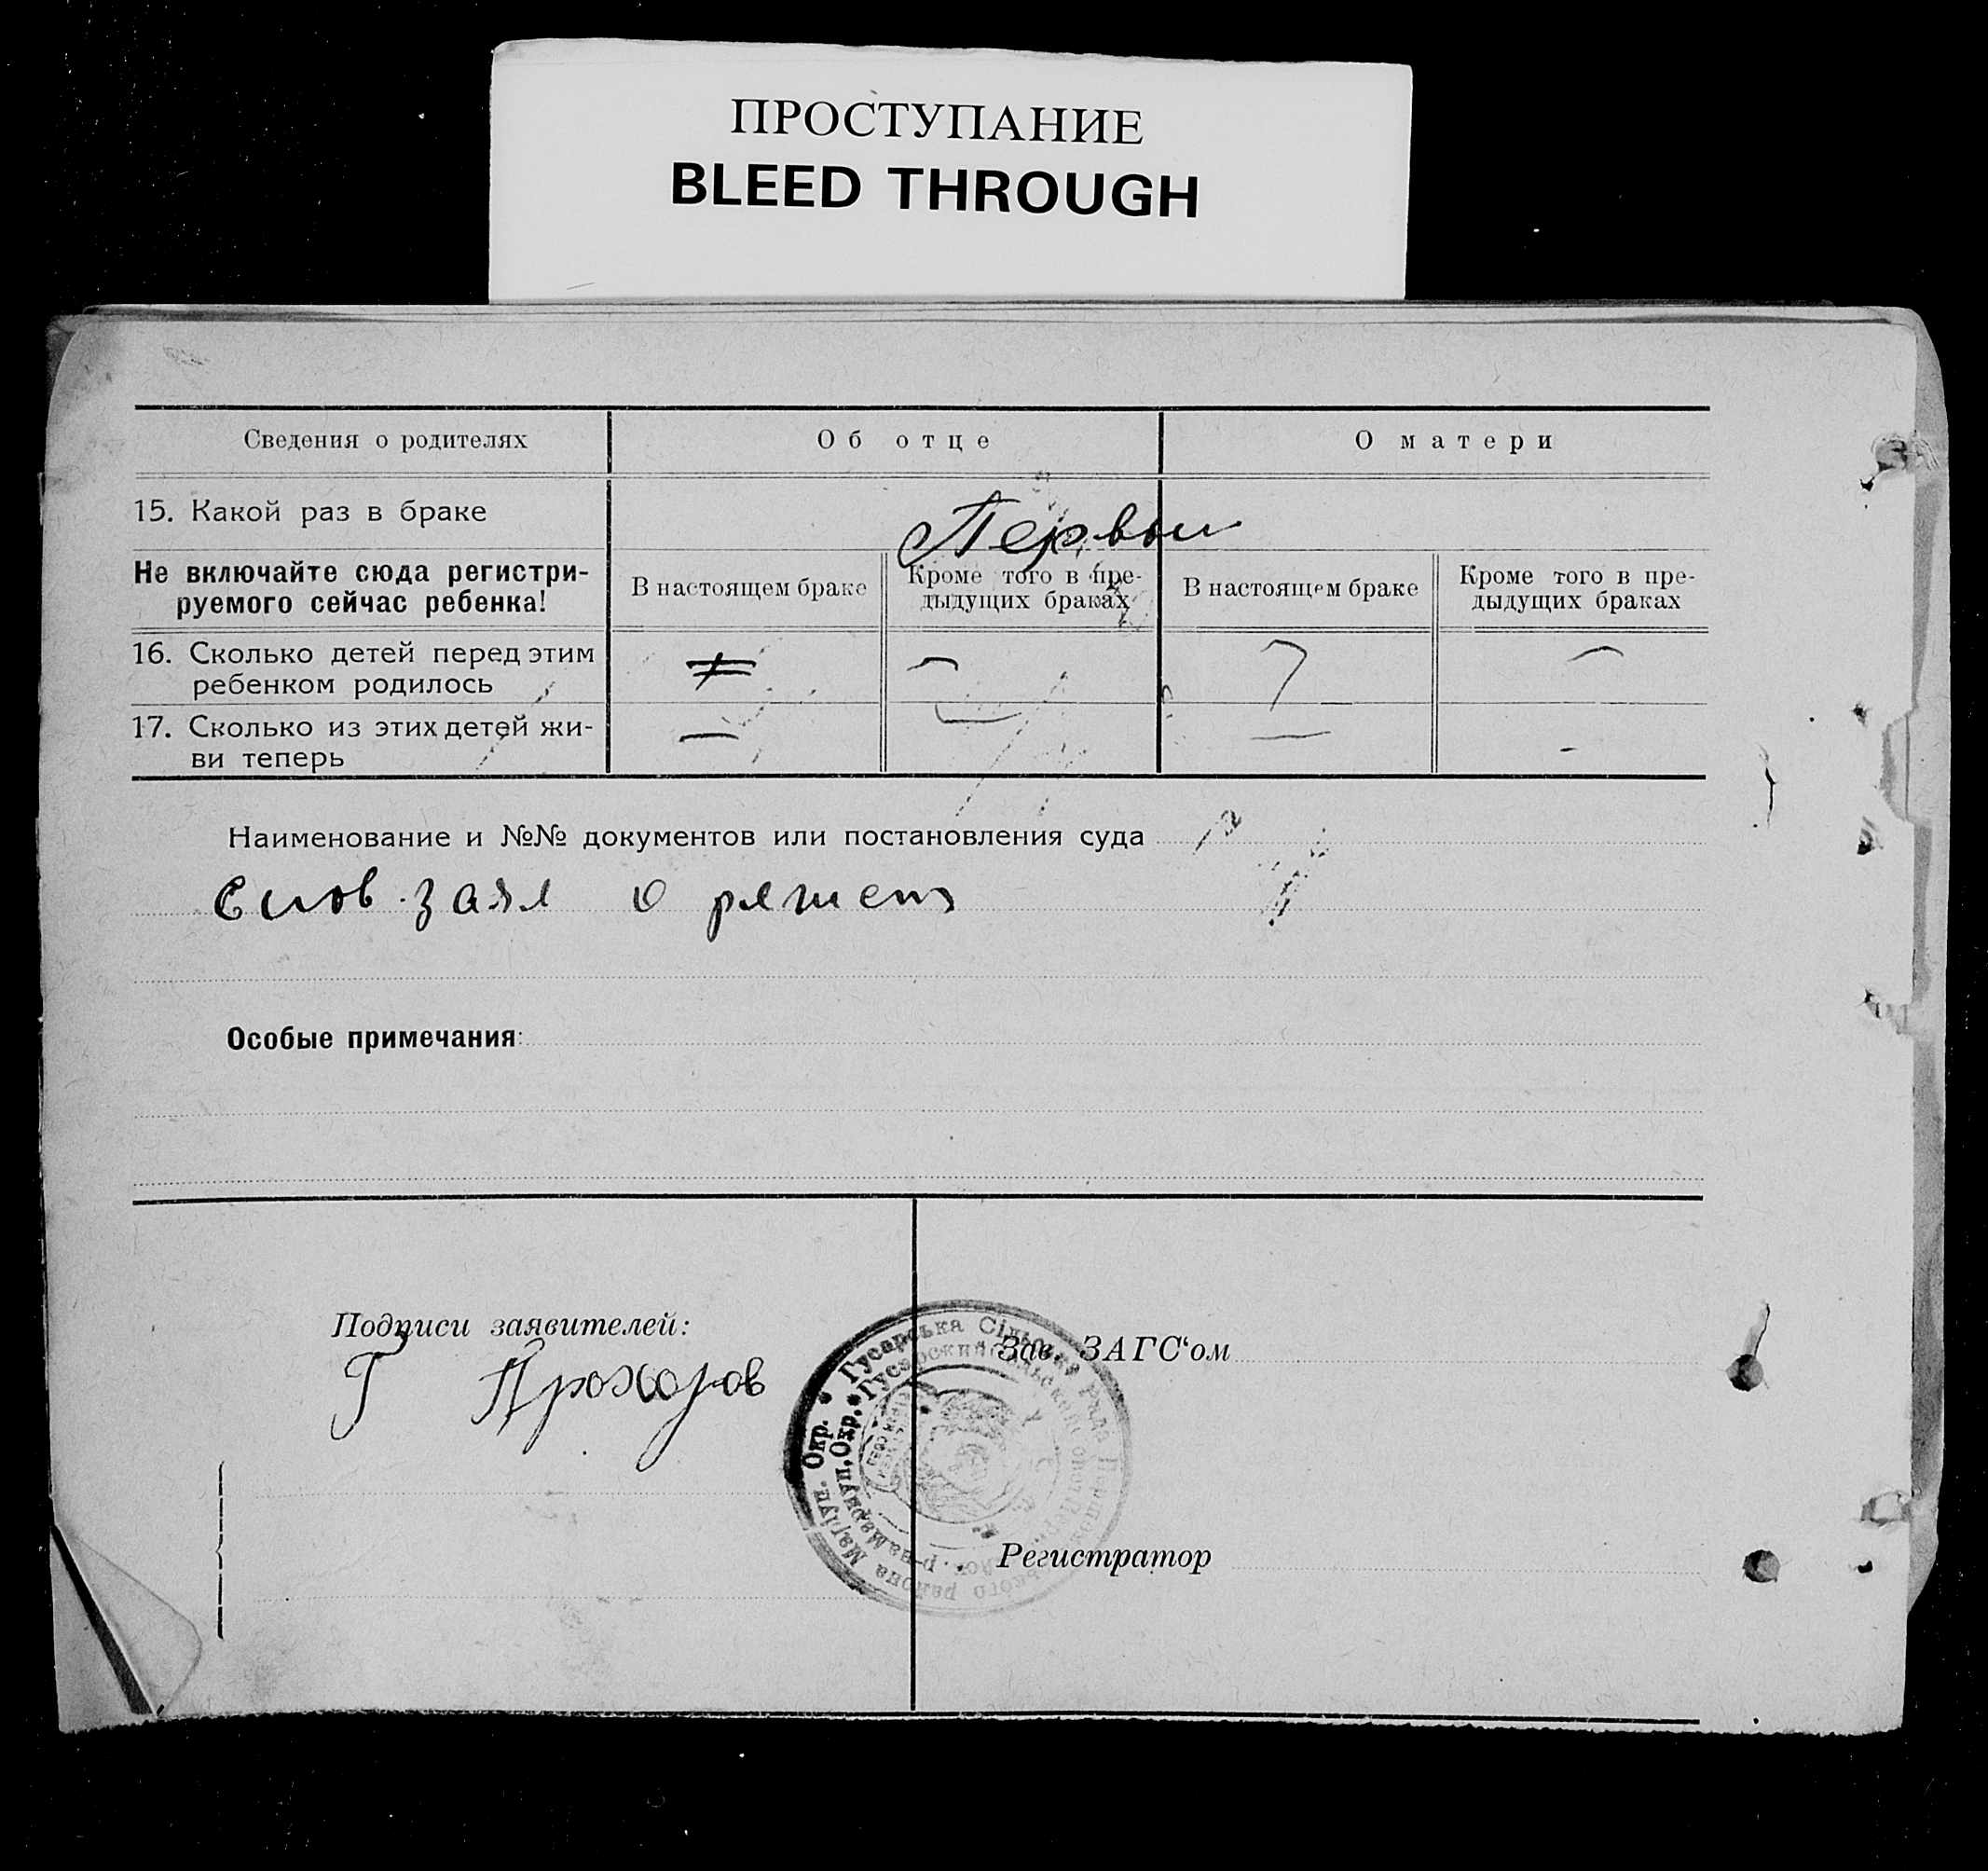 ПРОСТУПАНИЕ
BLEED THROUGH
Сведения о родителях
Об отце
О матери
15. Какой раз в браке
Первы
Не включайте сюда регистри-
руемого сейчас ребенка!
В настоящем браке
Кроме того в пре-
дыдущих браках
В настоящем браке
Кроме того в пре-
дыдущих браках
16. Сколько детей перед этим
ребенком родилось
17. Сколько из этих детей жи-
ви теперь
Наименование и №№ документов или постановления суда
заял о
Особые примечания:
Подписи заявителей:
Г Прохоров
Гусарська Сільська Рада
района Маріуп. Окр.
р-на Мариуп. Окр.
Зав. ЗАГС'ом
Регистратор